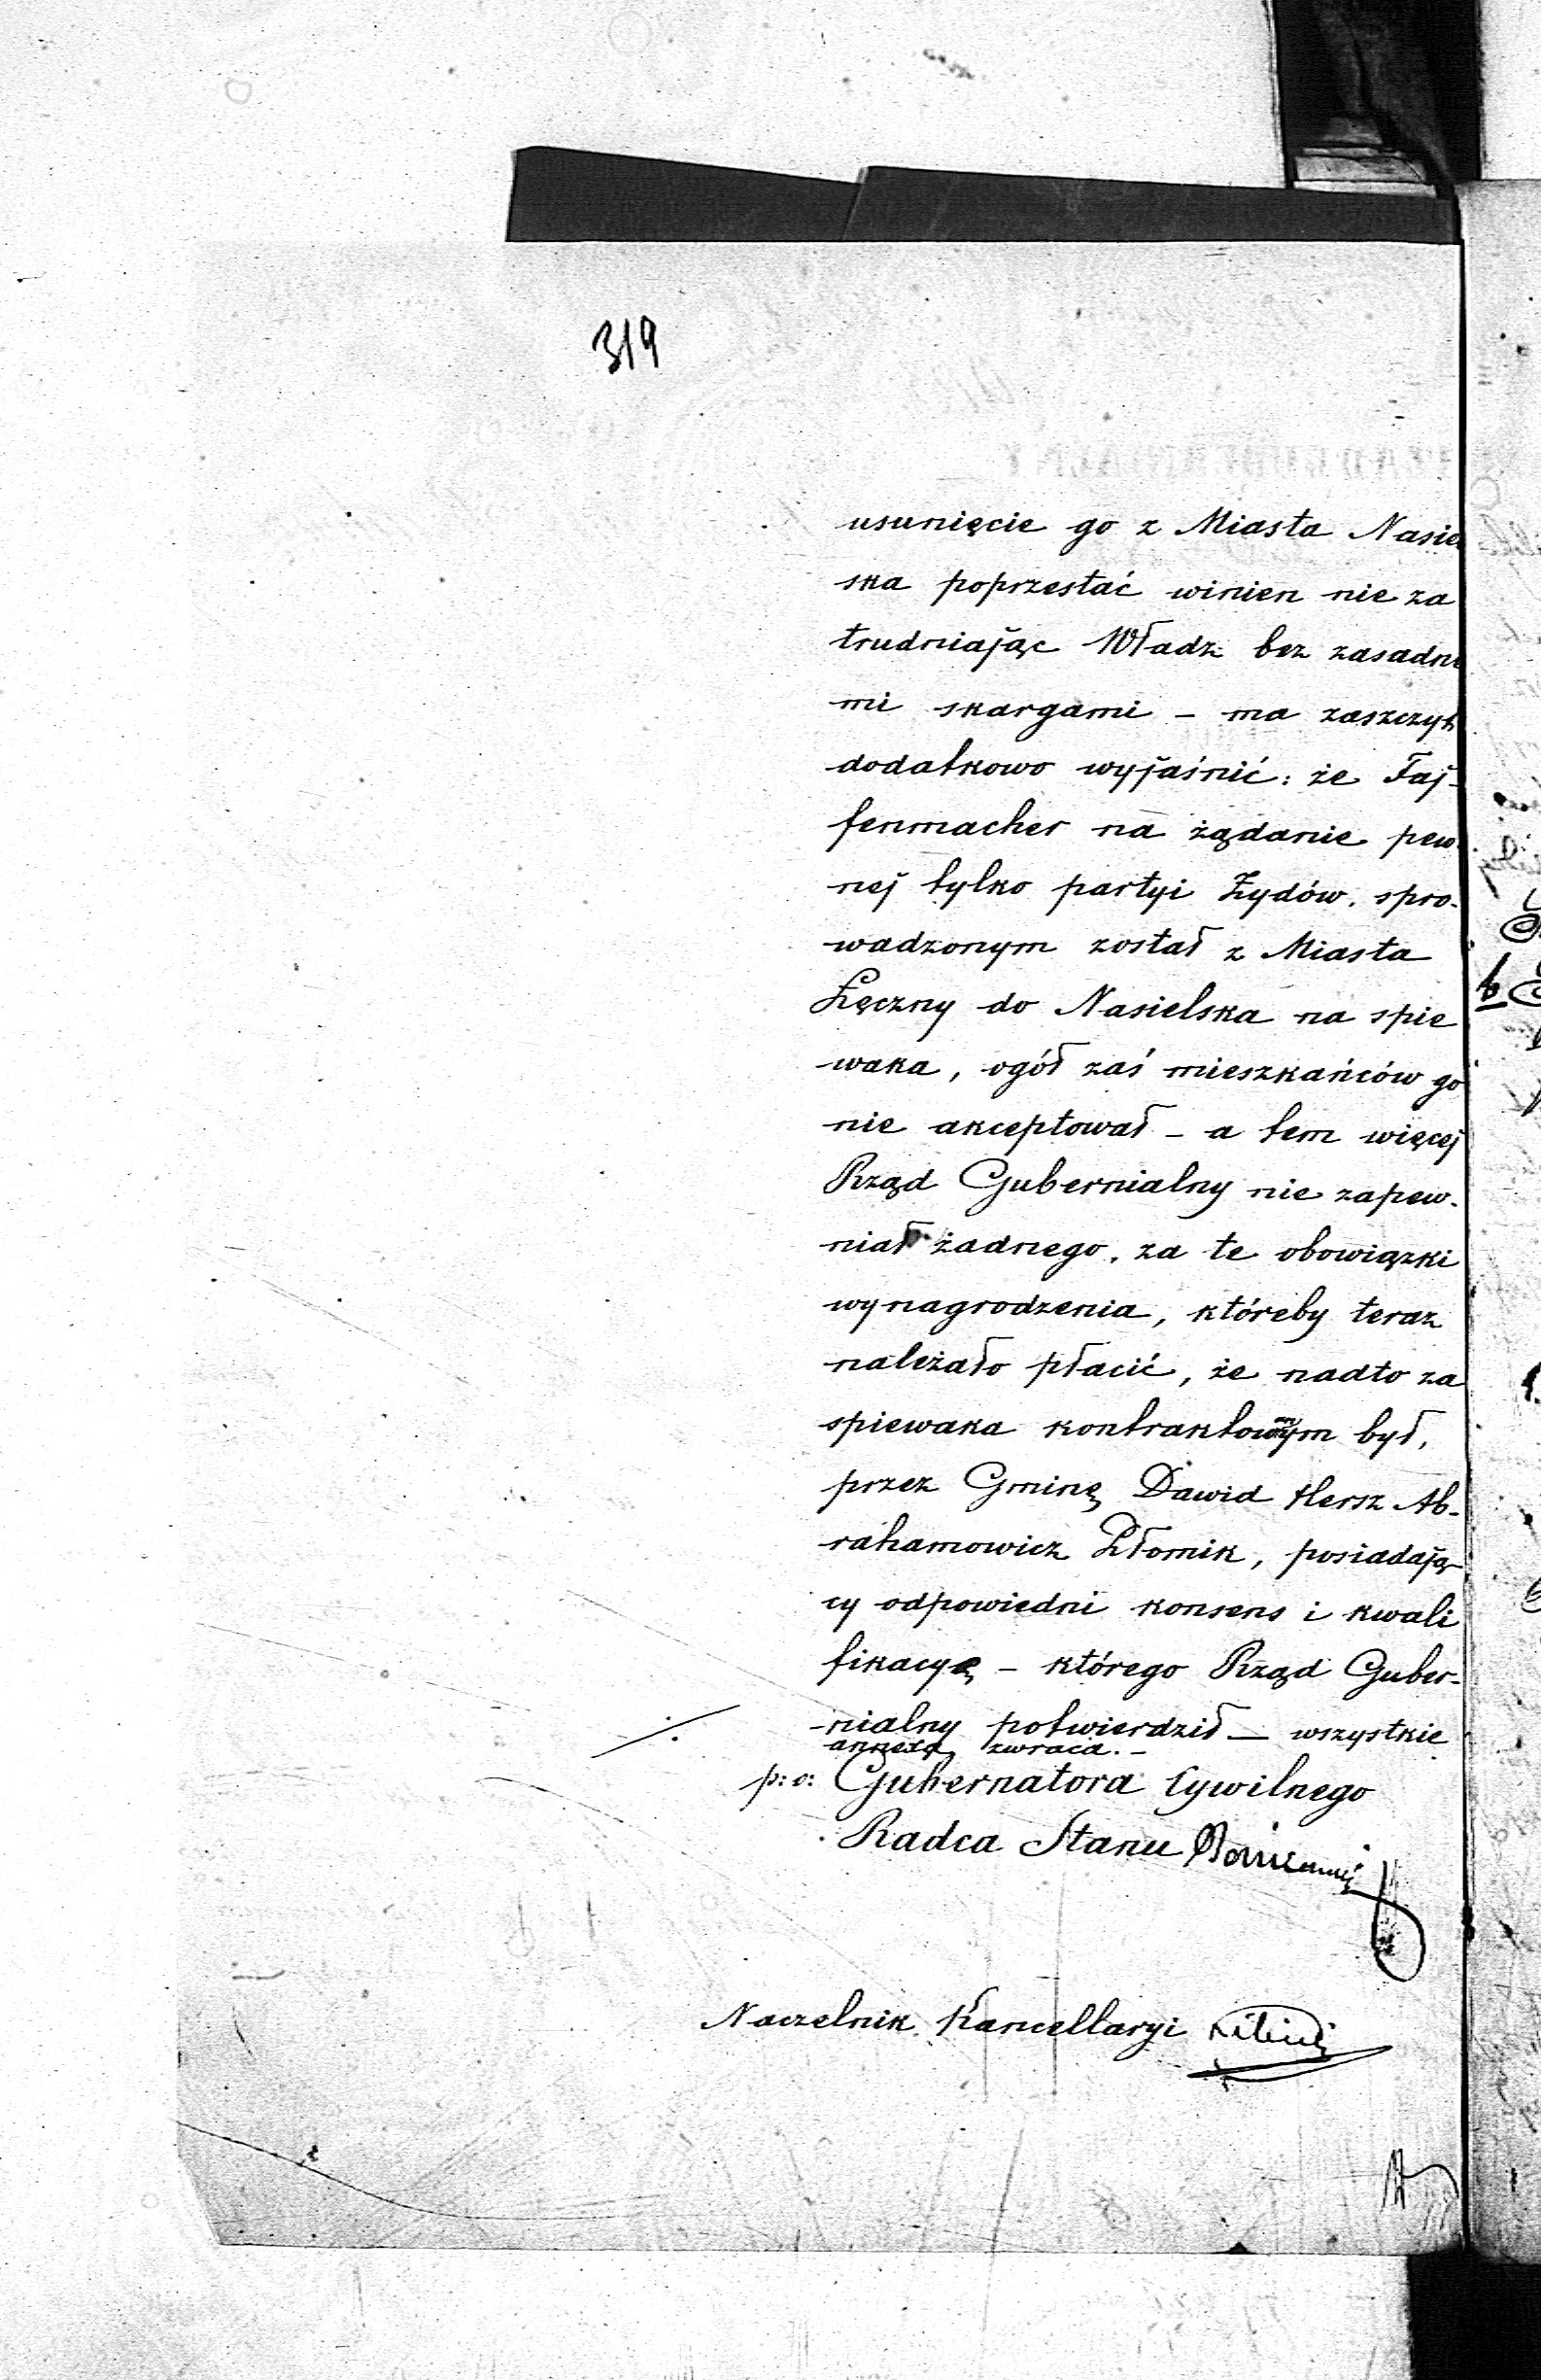 319
usunięcie go z Miasta Nasie
ska poprzestać winien nie za
trudniając Władz bez zasadne
mi skargami - ma zaszczyt
dodatkowo wyjaśnić: że Faj-
fenmacher na żądanie pew
nej tylko partyi Żydów. spro-
wadzonym został z Miasta
Łęczny do Nasielska na spie
waka, ogół zaś mieszkańców go
nie akceptował - a tem więcej
Rząd Gubernialny nie zapew-
niał żadnego, za te obowiązki
wynagrodzenia, któreby teraz
należało płacić, że nadto za
spiewaka kontraktowanym był,
przez Gminę Dawid Hersz Ab-
rahamowicz Złomik, posiadają-
cy odpowiedni konsens i kwali
fikacyę - którego Rząd Guber-
nialny potwierdził — wszystkie
annexa zwraca. -
p: o: Gubernatora Cywilnego
Radca Stanu
Naczelnik Kancellaryi